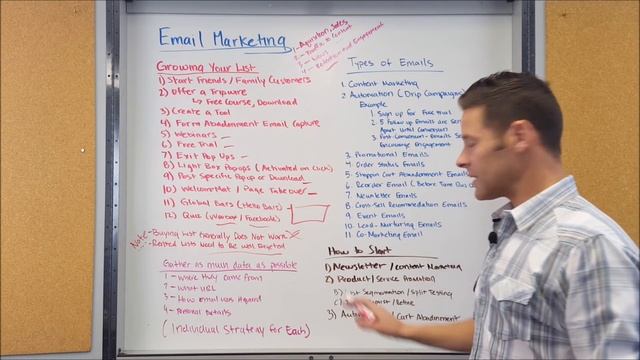 Email Marketing
1 - Aquisition, Sales
2 - Traffic to Content
3 - Leads
4 - Retention and Engagement
Growing Your List
1) Start Friends / Family Customers
2) Offer a Tripwire
↳ Free Course, Download
3) Create a Tool
4) Form Abandonment Email Capture
5) Webinars
6) Free Trial
7) Exit Pop Ups
8) Light Box Popups (Activated on Click)
9) Post Specific Popup or Download
10) WelcomeMat / Page Takeover
11) Global Bars (Hello Bars)
12) Quiz (
/ Facebook)
Note - Buying List Generally Does Not Work
Rented Lists Need to Be Well Targeted
Gather as much data as possible
1 - Where they Came From
2 - What URL
3 - How email was Aquired
4 - Personal Details
(Individual Strategy for Each)
Types of Emails
1. Content Marketing
2. Automation (Drip Campaigns)
Example
1. Sign up for Free Trial
2. 5 Follow up Emails are
Apart Until Conversion
3. Post-Conversion - Emails
Encourage Engagement
3. Promotional Emails
4. Order Status Emails
5. Shopping Cart Abandonment Emails
6. Reorder Email (Before Time
7. Newsletter Emails
8. Cross-Sell Recommendation Emails
9. Event Emails
10. Lead-Nurturing Emails
11. Co-Marketing Email
How to Start
1) Newsletter / Content Marketing
2) Product/Service Promotion
B) List Segmentation / Split Testing
C)
3)
/ Cart Abandonment